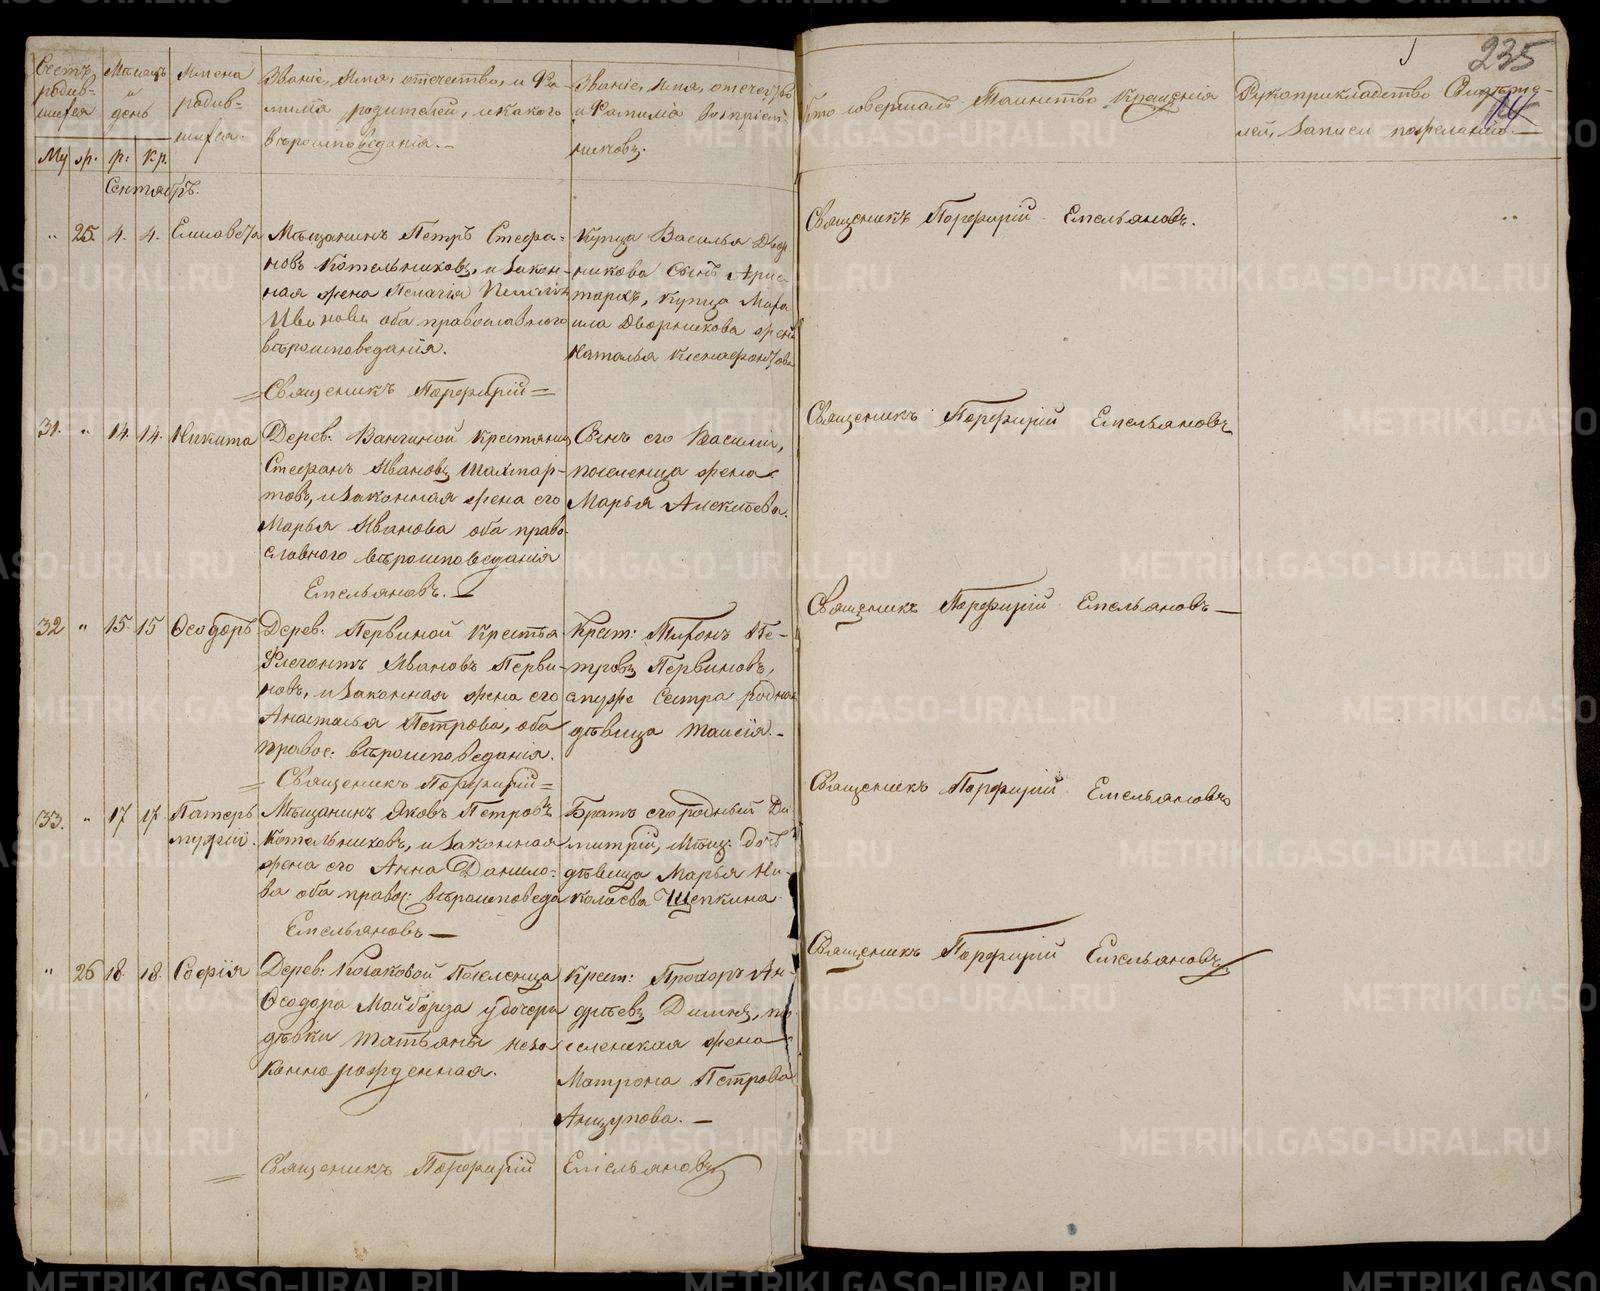 235
14
Счетъ родив-
шихся
Мѣсяцъ
и
день
Имена
родив-
шихся.
Званіе, Имя, отечество, и Фа-
милія родителей, и какого
вѣроисповеданія.
Званіе, Имя, отечество
и Фамилія Воспріем-
никовъ.
Кто совершалъ Таинство Крещенія
Рукоприкладство Свидѣте-
лей, Записи по желанію.
Му
р:
Кр.
Сентябрь.
25. 4. 4. Елисавета
Мѣщанинъ Петръ Стефа-
новъ Котельниковъ, и Закон-
ная жена Пелагія
Иванова оба православнаго
вѣроисповеданія.
Купца Василья Двор
никова Сынъ Арис
тархъ, Купца Миха
ила Дворникова жена
Наталья Ксенофонтова
Священикъ Порфирій Емельяновъ.
=Священикъ Порфирій=
31. 14. 14. Никита
Дерев: Вангиной Крестянинъ
Стефанъ Ивановъ
и Законная жена его
Марья Иванова оба право-
славного вѣроисповеданія
Емельяновъ.
Сынъ его Василій,
поселенца жена
Марья Алексѣева.
Священикъ Порфирій Емельяновъ
32 15 15 Ѳеодоръ
Дерев: Первиной Крестья
Флегонтъ Ивановъ Перви-
новъ, и Законная жена его
Анастасья Петрова, оба
правос: вѣроисповеданія.
Крест: Тихонъ Пе-
тровъ Первиновъ,
Сестра родная
дѣвица Таисія.
Священикъ Порфирій Емельяновъ
=Священикъ Порфирій=
33. 17 17 Патер
муфій.
Мѣщанинъ Яковъ Петровъ
Котельниковъ, и Законная
жена его Анна Данило-
ва оба правос: вѣроисповеда
Емельяновъ
Братъ его родный Ди
митрій, Мѣщ: дочь
дѣвица Марья Ни-
колаева Щепкина.
Священикъ Порфирій Емельяновъ
26 18. 18. Софія
Дерев: Косаковой Поселенца
Ѳеодора Майбороза у дочери
дѣвки Татьяны неза
конно рожденная.
Крест: Прохоръ Ан-
дрѣевъ по
селенская жена
Матрона Петрова
Анцупова.
Священикъ Порфирій Емельяновъ
= Священикъ Порфирій Емельяновъ
METRIKI.GASO-URAL.RU